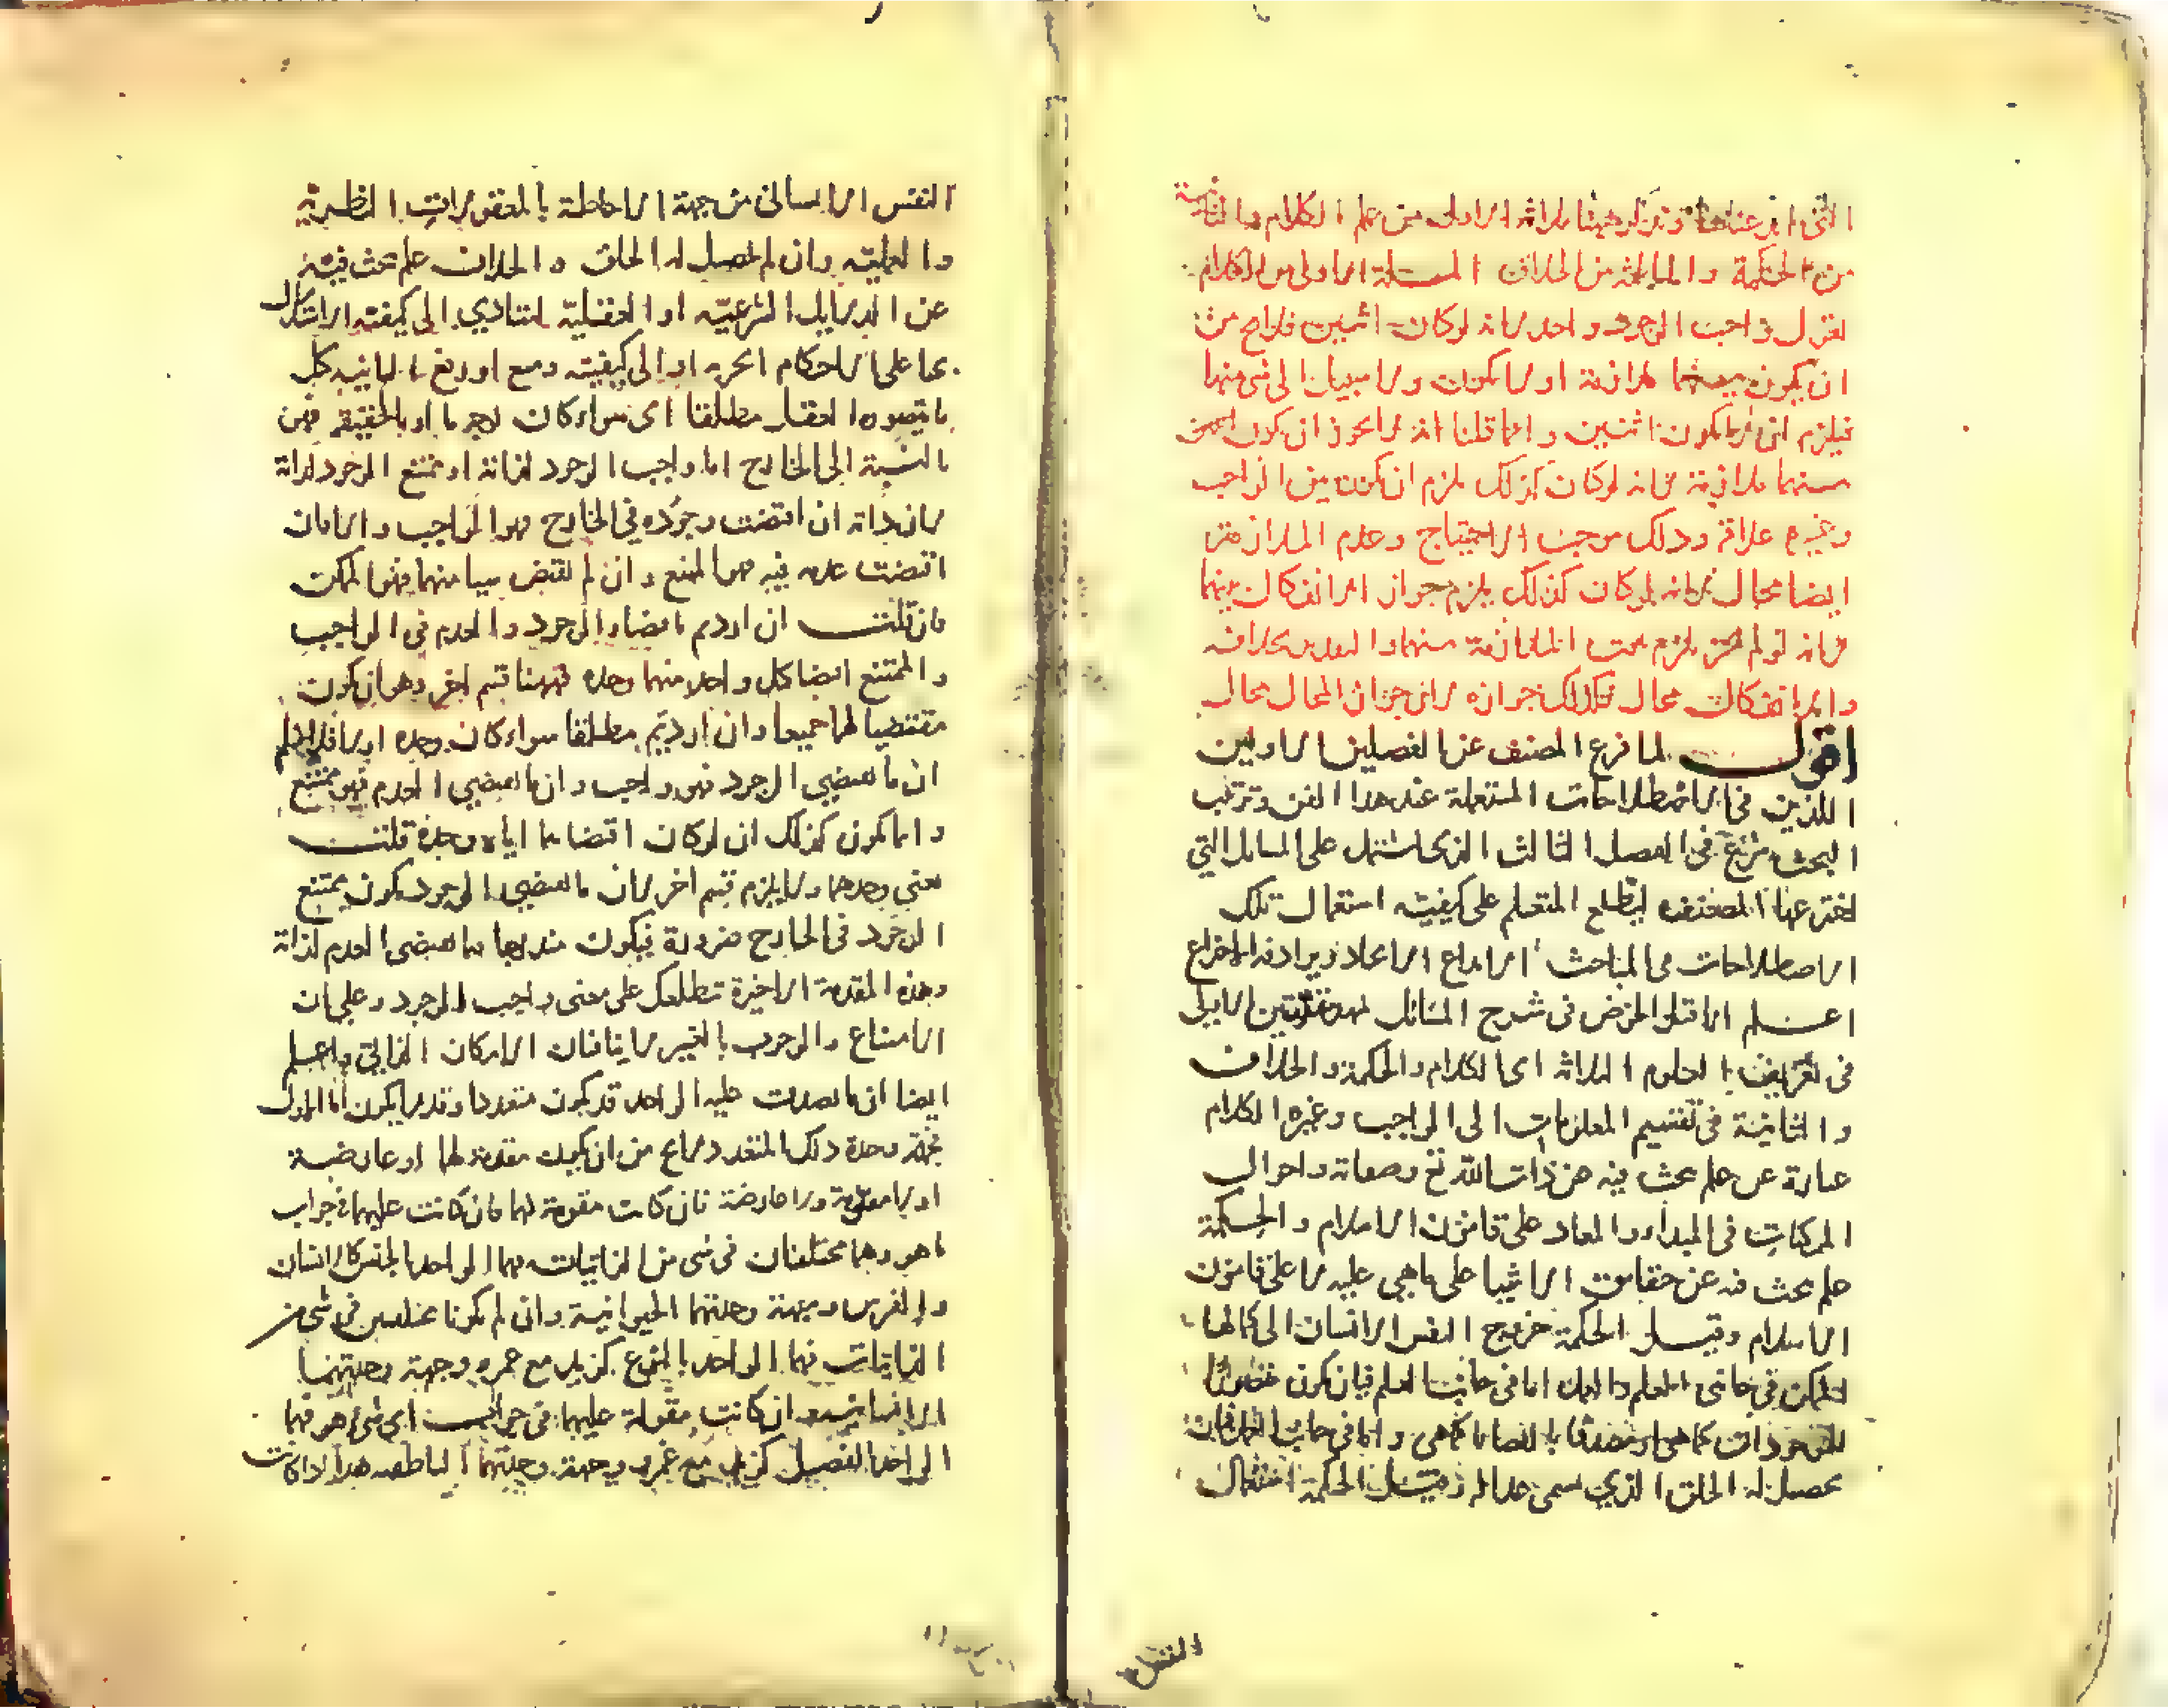 التى اخترعناها وهى ثلاثة الاولى من علم الكلام والثانية
من الحكمة والثالثة من الخلاف المسئلة الاولى من الكلام
نقول واجب الوجود واحد لانه لوكان اثنين فلا يخ من
ان يكون بينهما ملازمة او لا يكون ولا سبيل الى شى منها
فيلزم ان لا يكون اثنين وانما قلنا انه لا يجوز ان يكون
بينهما ملازمة لانه لوكان كذلك يلزم ان يكون بين الواجب
وغيره علاقة وذلك موجب الاحتياج وعدم الملازمة
ايضا محال لانه لوكان كذلك يلزم جواز الانفكاك بينهما
لانه لو لم يجز يلزم تحت الملازمة بينهما والتقدير بخلافه
والانفكاك محال فكذلك جوازه لان جواز المحال محال
اقول لما فرغ المصنف عن الفصلين الاولين
اللذين فى الاصطلاحات المستعملة عند هذا الفن وترتيب
البحث شرع فى الفصل الثالث الذى اشتمل على المسائل التي
اخترعها المصنف ليطلع المتعلم على كيفية استعمال تلك
الاصطلاحات فى المباحث الابداع الايجاد ويرادفه الاختراع
اعلم ان قبل الخوض فى شرح المسائل مقدمتين الاولى
فى تعريف العلوم الثلاثة اى الكلام والحكمة والخلاف
والثانية فى تقسيم المعلومات الى الواجب وغيره الكلام
عبارة عن علم يبحث فيه عن ذات الله تع وصفاته واحوال
الممكنات فى المبداء والمعاد على قانون الاسلام والحكمة
علم يبحث فيه عن حقايق الاشيا على ما هى عليه لا على قانون
الاسلام وقيل الحكمة خروج النفس الانسان الى كمالها
الممكن فى جانبى العلم والعمل اما فى جانب العلم فبان يكون
للموجودات كما هى او مصدقا بالقضايا كما هى واما فى جانب العمل فبان
يحصل له الخلق الذي يسمى عدالة وقيل الحكمة استكمال
النفس
النفس الانسانى من جهة الاحاطة بالمعقولات النظرية
والعملية وان لم يحصل له الخلق والخلاف علم يبحث فيه
عن الدلايل الشرعية او العقلية لتنادي الى كيفية الاستدلال
بها على الاحكام او الى كيفية دمع او رفع كل
ما تصوره العقل مطلقا اى سواء كان بوجه ما او بالحقيقة فهو
بالنسبة الى الخارج اما واجب الوجود لذاته او ممتنع الوجود لذاته
لان ذاته ان اقتضت وجوده فى الخارج فهو الواجب والا فان
اقتضت عدمه فيه فهو الممتنع وان لم تقتض شيا منهما فهو الممكن
فان قلت ان اردتم باقتضاء الوجود والعدم فى الواجب
والممتنع اقتضا كل واحد منهما وحده فههنا قسم اخر وهو ان يكون
مقتضيا لهما جميعا وان اردتم مطلقا سواء كان وحده او لا فلا نسلم
ان ما يقتضى الوجود فهو واجب وان ما يقتضى العدم فهو ممتنع
وانما يكون كذلك ان لوكان اقتضاهما اياه وحده قلت
نعنى وحدهما ولا يلزم قسم اخر لان ما يقتضى الوجود يكون ممتنع
الوجود فى الخارج ضرورة فيكون مندرجا فيما يقتضى العدم لذاته
وهذه المقدمة الاخيرة تطلعك على معنى واجب الوجود وعلى ان
الامتناع والوجوب بالغير لا ينافيان الامكان الذاتى واعلم
ايضا ان ما صدق عليه الواحد قد يكون متعددا وقد لا يكون اما الاول
فجهة وحدة ذلك المتعدد لا يخ من ان يكون مقومة لها او عارضة
او لا مقومة ولا عارضة فان كانت مقومة لهما فان كانت عليهما فى جواب
ما هو وهما مختلفان فى شى من الذاتيات فهما الواحد بالجنس كالانسان
والفرس وجهة وحدتهما الحيوانية وان لم يكونا مختلفين فى شى من
الذاتيات فهما الواحد بالنوع كزيد مع عمرو وجهة وحدتهما
الانسانية وان كانت مقولة عليهما فى جواب اى شى هو فهما
الواحد بالفصل كزيد مع عمرو وجهة وحدتهما الناطقة هذا اذا كانت